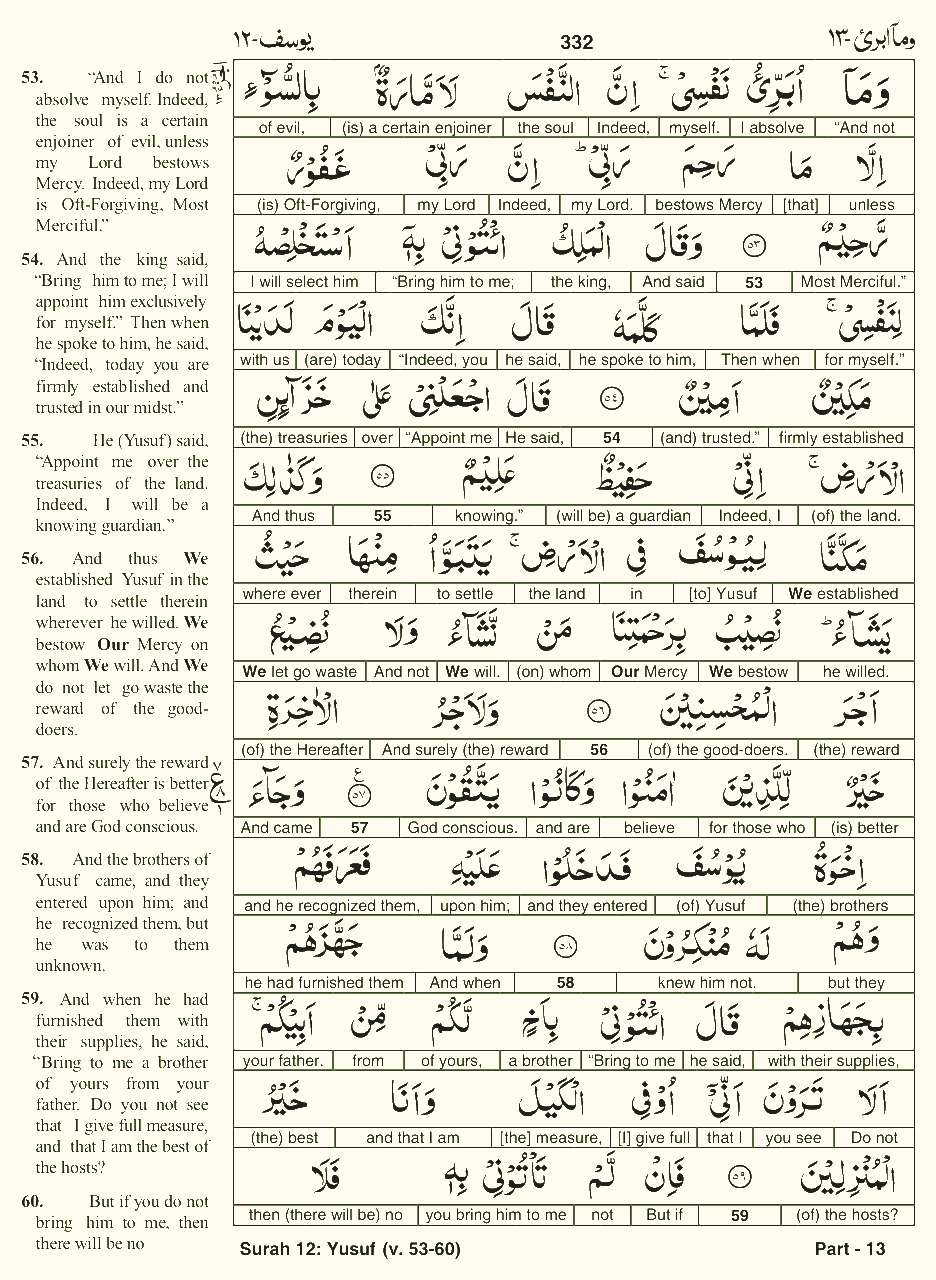 يوسف-١٢
332
ومآ ابرئ-١٣
53. “And I do not
absolve myself. Indeed,
the soul is a certain
enjoiner of evil, unless
my Lord bestows
Mercy. Indeed, my Lord
is Oft-Forgiving, Most
Merciful.”
54. And the king said,
“Bring him to me; I will
appoint him exclusively
for myself.” Then when
he spoke to him, he said,
“Indeed, today you are
firmly established and
trusted in our midst.”
55. He (Yusuf) said,
“Appoint me over the
treasuries of the land.
Indeed, I will be a
knowing guardian.”
56. And thus We
established Yusuf in the
land to settle therein
wherever he willed. We
bestow Our Mercy on
whom We will. And We
do not let go waste the
reward of the good-
doers.
57. And surely the reward
of the Hereafter is better
for those who believe
and are God conscious.
58. And the brothers of
Yusuf came, and they
entered upon him; and
he recognized them, but
he was to them
unknown.
59. And when he had
furnished them with
their supplies, he said,
“Bring to me a brother
of yours from your
father. Do you not see
that I give full measure,
and that I am the best of
the hosts?
60. But if you do not
bring him to me, then
there will be no
وَمَآ اُبَرِّئُ نَفْسِىْ ۚ اِنَّ النَّفْسَ لَاَمَّارَةٌۢ بِالسُّوْٓءِ
of evil, (is) a certain enjoiner the soul Indeed, myself. I absolve “And not
اِلَّا مَا رَحِمَ رَبِّىْ ؕ اِنَّ رَبِّىْ غَفُوْرٌ
(is) Oft-Forgiving, my Lord Indeed, my Lord. bestows Mercy [that] unless
رَّحِيْمٌ ٥٣ وَقَالَ الْمَلِكُ ائْتُوْنِىْ بِهٖۤ اَسْتَخْلِصْهُ
I will select him “Bring him to me; the king, And said 53 Most Merciful.”
لِنَفْسِىْ ۚ فَلَمَّا كَلَّمَهٗ قَالَ اِنَّكَ الْيَوْمَ لَدَيْنَا
with us (are) today “Indeed, you he said, he spoke to him, Then when for myself.”
مَكِيْنٌ اَمِيْنٌ ٥٤ قَالَ اجْعَلْنِىْ عَلٰى خَزَآئِنِ
(the) treasuries over “Appoint me He said, 54 (and) trusted.” firmly established
الْاَرْضِ ۚ اِنِّىْ حَفِيْظٌ عَلِيْمٌ ٥٥ وَكَذٰلِكَ
And thus 55 knowing.” (will be) a guardian Indeed, I (of) the land.
مَكَّنَّا لِيُوْسُفَ فِى الْاَرْضِ ۚ يَتَبَوَّاُ مِنْهَا حَيْثُ
where ever therein to settle the land in [to] Yusuf We established
يَشَآءُ ؕ نُصِيْبُ بِرَحْمَتِنَا مَنْ نَّشَآءُ وَلَا نُضِيْعُ
We let go waste And not We will. (on) whom Our Mercy We bestow he willed.
اَجْرَ الْمُحْسِنِيْنَ ٥٦ وَلَاَجْرُ الْاٰخِرَةِ
(of) the Hereafter And surely (the) reward 56 (of) the good-doers. (the) reward
خَيْرٌ لِّلَّذِيْنَ اٰمَنُوْا وَكَانُوْا يَتَّقُوْنَ ٥٧ ع وَجَآءَ
And came 57 God conscious. and are believe for those who (is) better
اِخْوَةُ يُوْسُفَ فَدَخَلُوْا عَلَيْهِ فَعَرَفَهُمْ
and he recognized them, upon him; and they entered (of) Yusuf (the) brothers
وَهُمْ لَهٗ مُنْكِرُوْنَ ٥٨ وَلَمَّا جَهَّزَهُمْ
he had furnished them And when 58 knew him not. but they
بِجَهَازِهِمْ قَالَ ائْتُوْنِىْ بِاَخٍ لَّكُمْ مِّنْ اَبِيْكُمْ ۚ
your father. from of yours, a brother “Bring to me he said, with their supplies,
اَلَا تَرَوْنَ اَنِّىْۤ اُوْفِى الْكَيْلَ وَاَنَا خَيْرُ
(the) best and that I am [the] measure, [I] give full that I you see Do not
الْمُنْزِلِيْنَ ٥٩ فَاِنْ لَّمْ تَاْتُوْنِىْ بِهٖ فَلَا
then (there will be) no you bring him to me not But if 59 (of) the hosts?
Surah 12: Yusuf (v. 53-60)
Part - 13